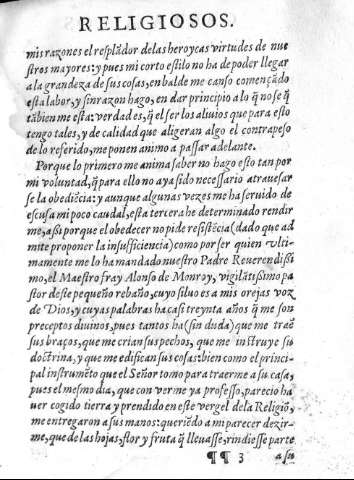 RELIGIOSOS.
mis razones el resplãdor de las heroycas virtudes de nue
stros mayores: y pues mi corto estilo no ha de poder llegar
a la grandeza de sus cosas, en balde me canso começãdo
esta labor, y sin razon hago, en dar principio a lo q̃ no se q̃
tãbien me esta: verdad es, q̃ el ser los aliuios que para esto
tengo tales, y de calidad que aligeran algo el contrapeso
de lo referido, me ponen animo a passar adelante.
Porque lo primero me anima saber no hago esto tan por
mi voluntad, q̃ para ello no aya sido necessario atrauesar
se la obediẽcia: y aunque algunas vezes me ha seruido de
escusa mi poco caudal, esta tercera he determinado rendir
me, assi porque el obedecer no pide resistẽcia (dado que ad
mite proponer la insufficiencia) como por ser quien vlti-
mamente me lo ha mandado nuestro Padre Reuerendissi
mo, el Maestro fray Alonso de Monroy, vigilãtissimo pa
stor deste pequeño rebaño, cuyo siluo es a mis orejas voz
de Dios, y cuyas palabras ha casi treynta años q̃ me son
preceptos diuinos, pues tantos ha (sin duda) que me traẽ
sus braços, que me crian sus pechos, que me instruye su
doctrina, y que me edifican sus cosas: bien como el princi-
pal instrumẽto que el Señor tomo para traerme a su casa,
pues el mesmo dia, que con verme ya professo, parecio ha
uer cogido tierra y prendido en este vergel de la Religiõ,
me entregaron a sus manos: queriẽdo a mi parecer dezir-
me, que de las hojas, flor y fruta q̃ lleuasse, rindiesse parte
¶¶ 3 a su